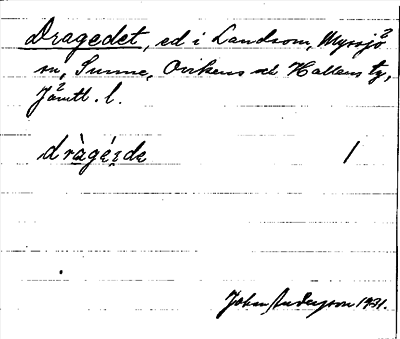 Dragedet, ed i Landsom, Myssjö
sn, Sunne, Ovikens och Hallens tg,
Jämtl. l.
dràgéıdə 1
John Andersson 1931.